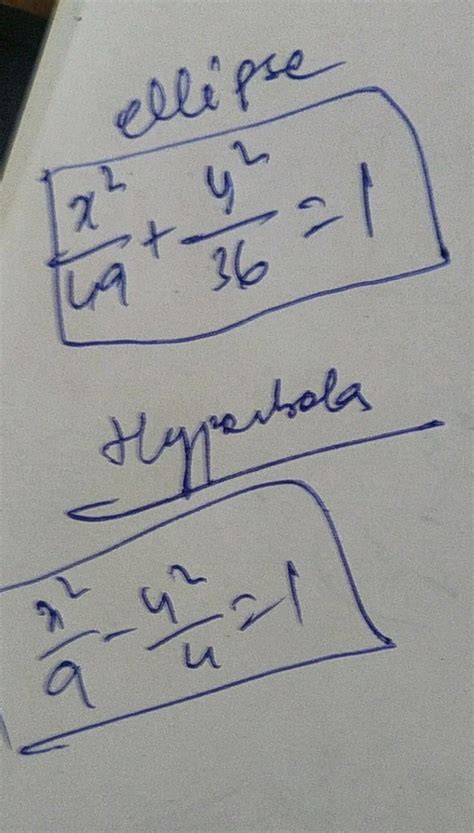 ellipse
x²/49 + y²/36 = 1
Hyperbola
x²/9 - y²/4 = 1